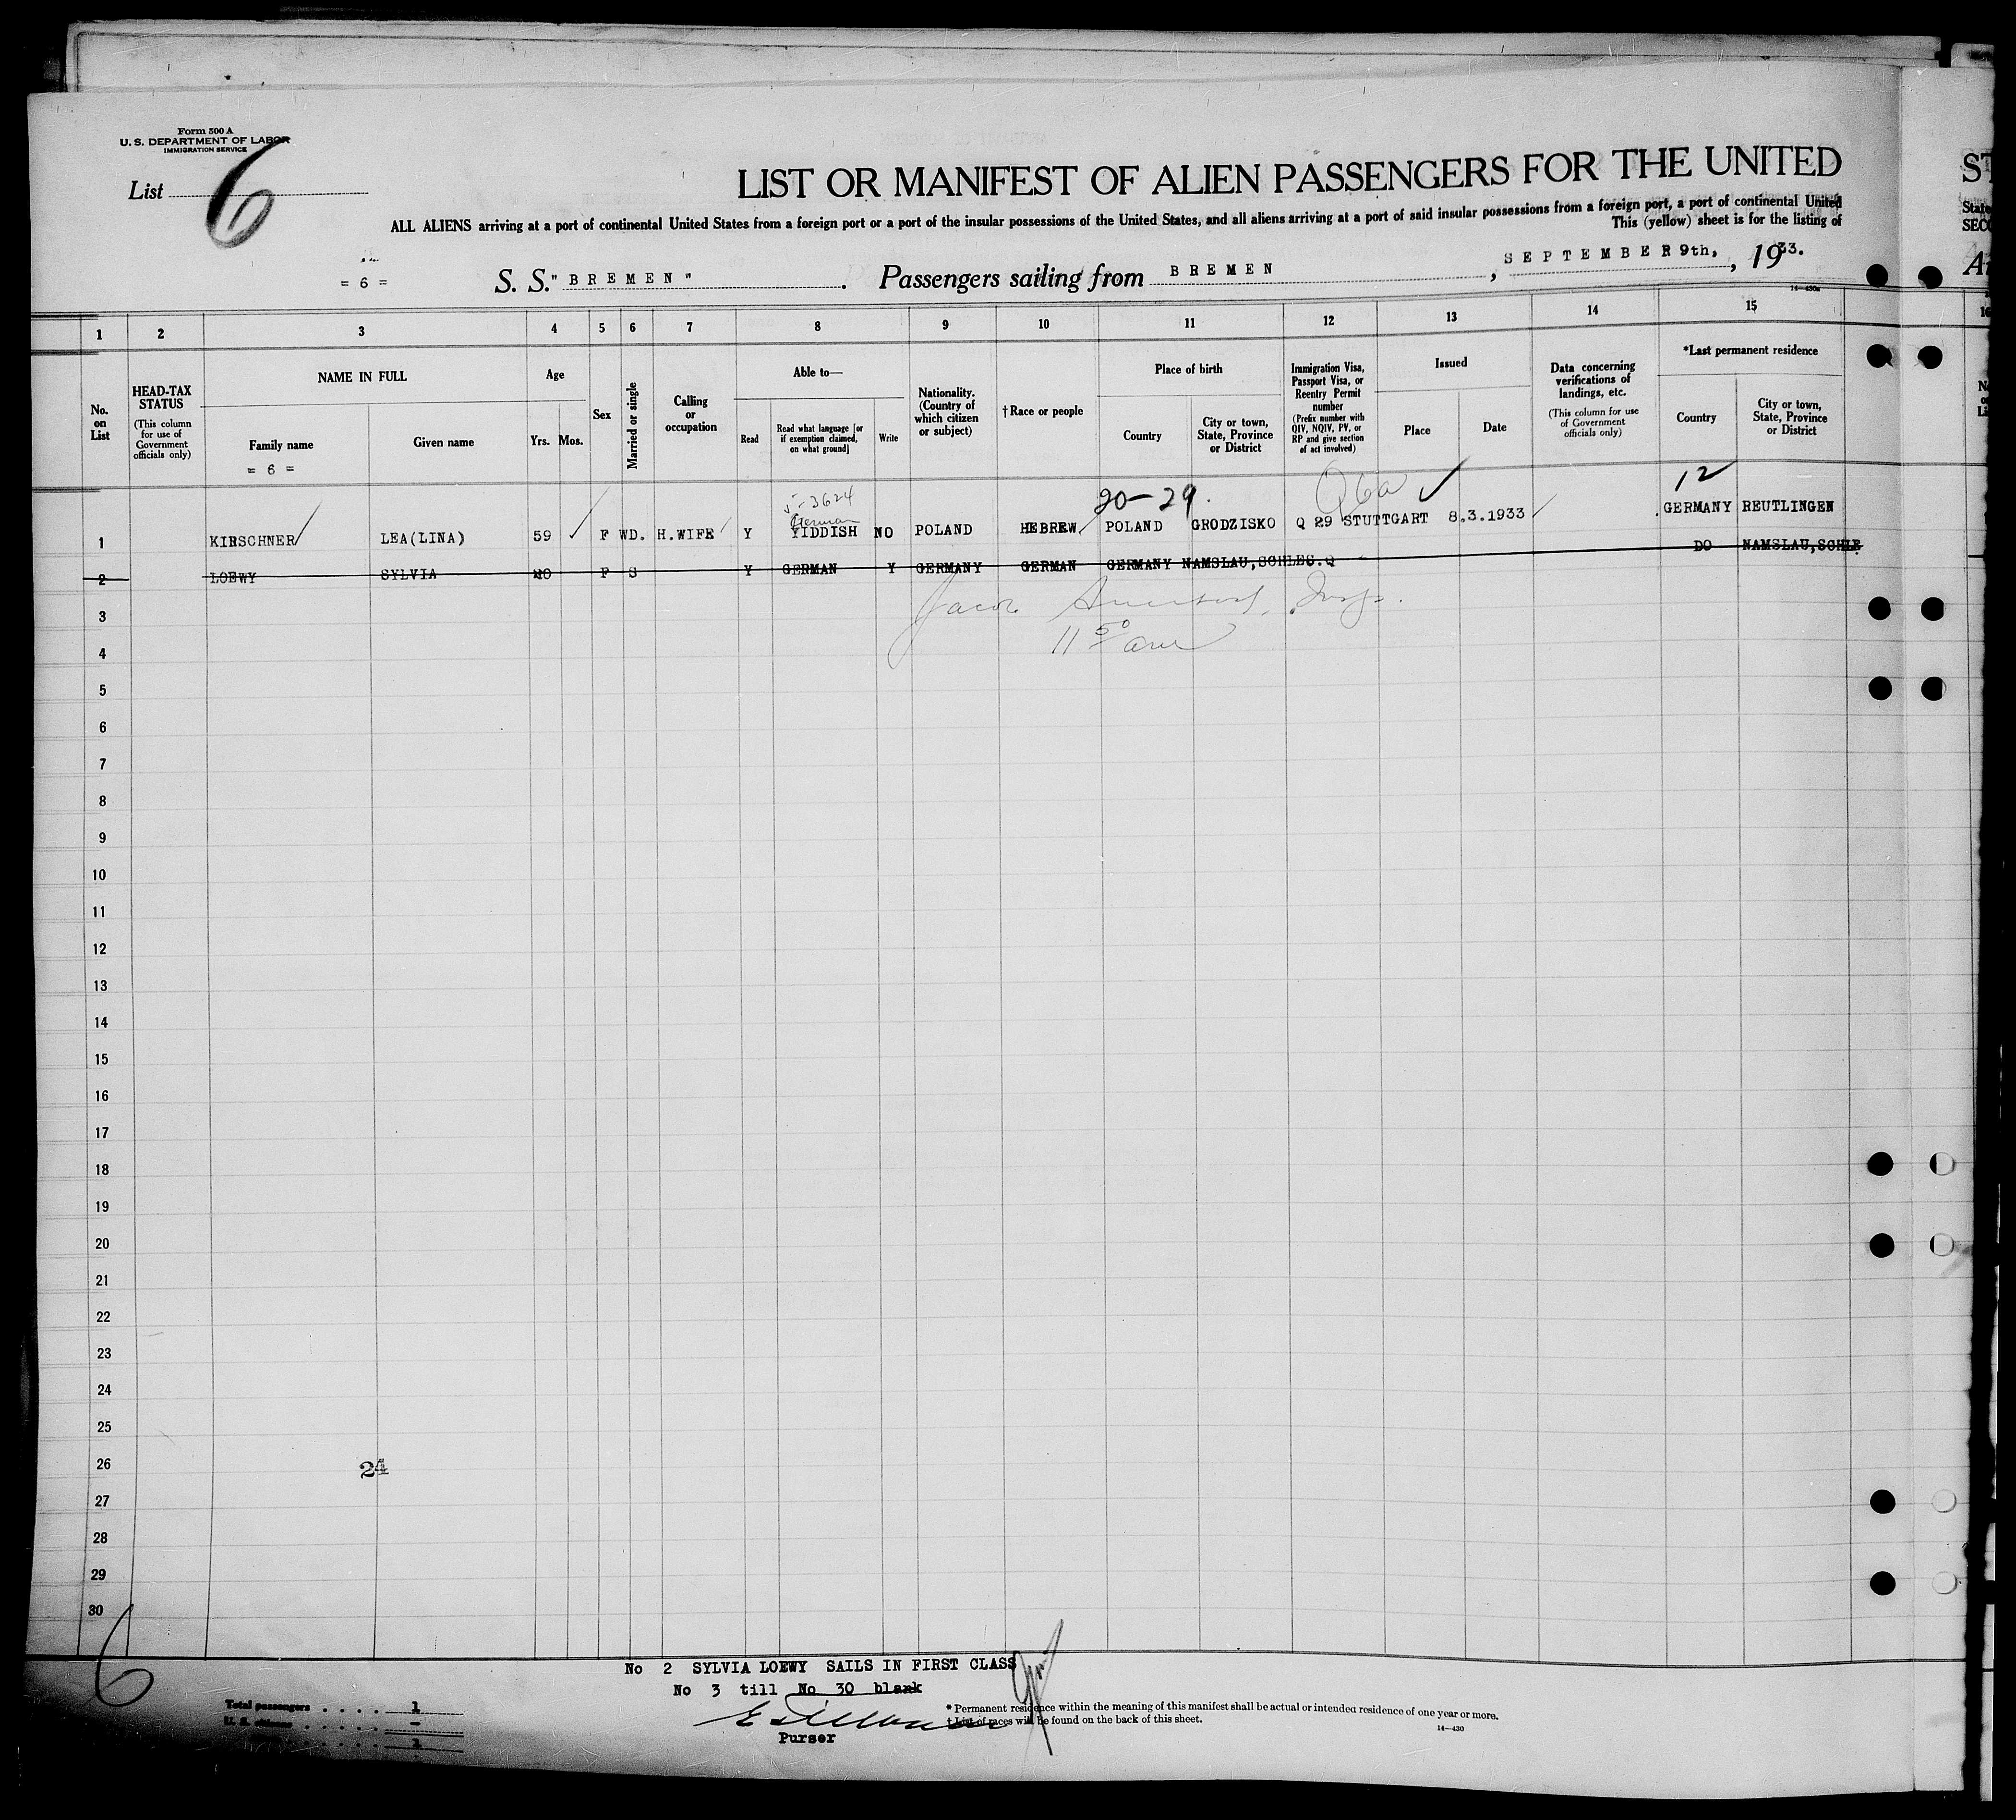 Form 500 A
U. S. DEPARTMENT OF LABOR
IMMIGRATION SERVICE
List 6
LIST OR MANIFEST OF ALIEN PASSENGERS FOR THE UNITED
ST
ALL ALIENS arriving at a port of continental United States from a foreign port or a port of the insular possessions of the United States, and all aliens arriving at a port of said insular possessions from a foreign port, a port of continental United
State
This (yellow) sheet is for the listing of
SECO
= 6 = S. S. "BREMEN". Passengers sailing from BREMEN, SEPTEMBER 9th, 1933.
14—430a
1 2 3 4 5 6 7 8 9 10 11 12 13 14 15
No. on List
HEAD-TAX STATUS
(This column for use of Government officials only)
NAME IN FULL
Family name
Given name
= 6 =
Age
Yrs. Mos.
Sex
Married or single
Calling or occupation
Able to—
Read
Read what language [or if exemption claimed, on what ground]
Write
Nationality. (Country of which citizen or subject)
†Race or people
Place of birth
Country
City or town, State, Province or District
Immigration Visa, Passport Visa, or Reentry Permit number
(Prefix number with QIV, NQIV, PV, or RP and give section of act involved)
Issued
Place
Date
Data concerning verifications of landings, etc.
(This column for use of Government officials only)
*Last permanent residence
Country
City or town, State, Province or District
5-3624
German
20-29.
12
1 KIRSCHNER LEA(LINA) 59 F WD. H.WIFE Y YIDDISH NO POLAND HEBREW POLAND GRODZISKO Q 29 STUTTGART 8.3.1933 GERMANY REUTLINGEN
2 LOEWY SYLVIA F S Y GERMAN Y GERMANY GERMAN GERMANY NAMSLAU,SCHLES.Q DO NAMSLAU,SCHLE
3
4
5
6
7
8
9
10
11
12
13
14
15
16
17
18
19
20
21
22
23
24
25
26
24
27
28
29
30
6
No 2 SYLVIA LOEWY SAILS IN FIRST CLASS
No 3 till No 30 blank
Purser
Total passengers . . . . 1
U. S. citizens . . . . . —
1
* Permanent residence within the meaning of this manifest shall be actual or intended residence of one year or more.
† List of races will be found on the back of this sheet.
14—430